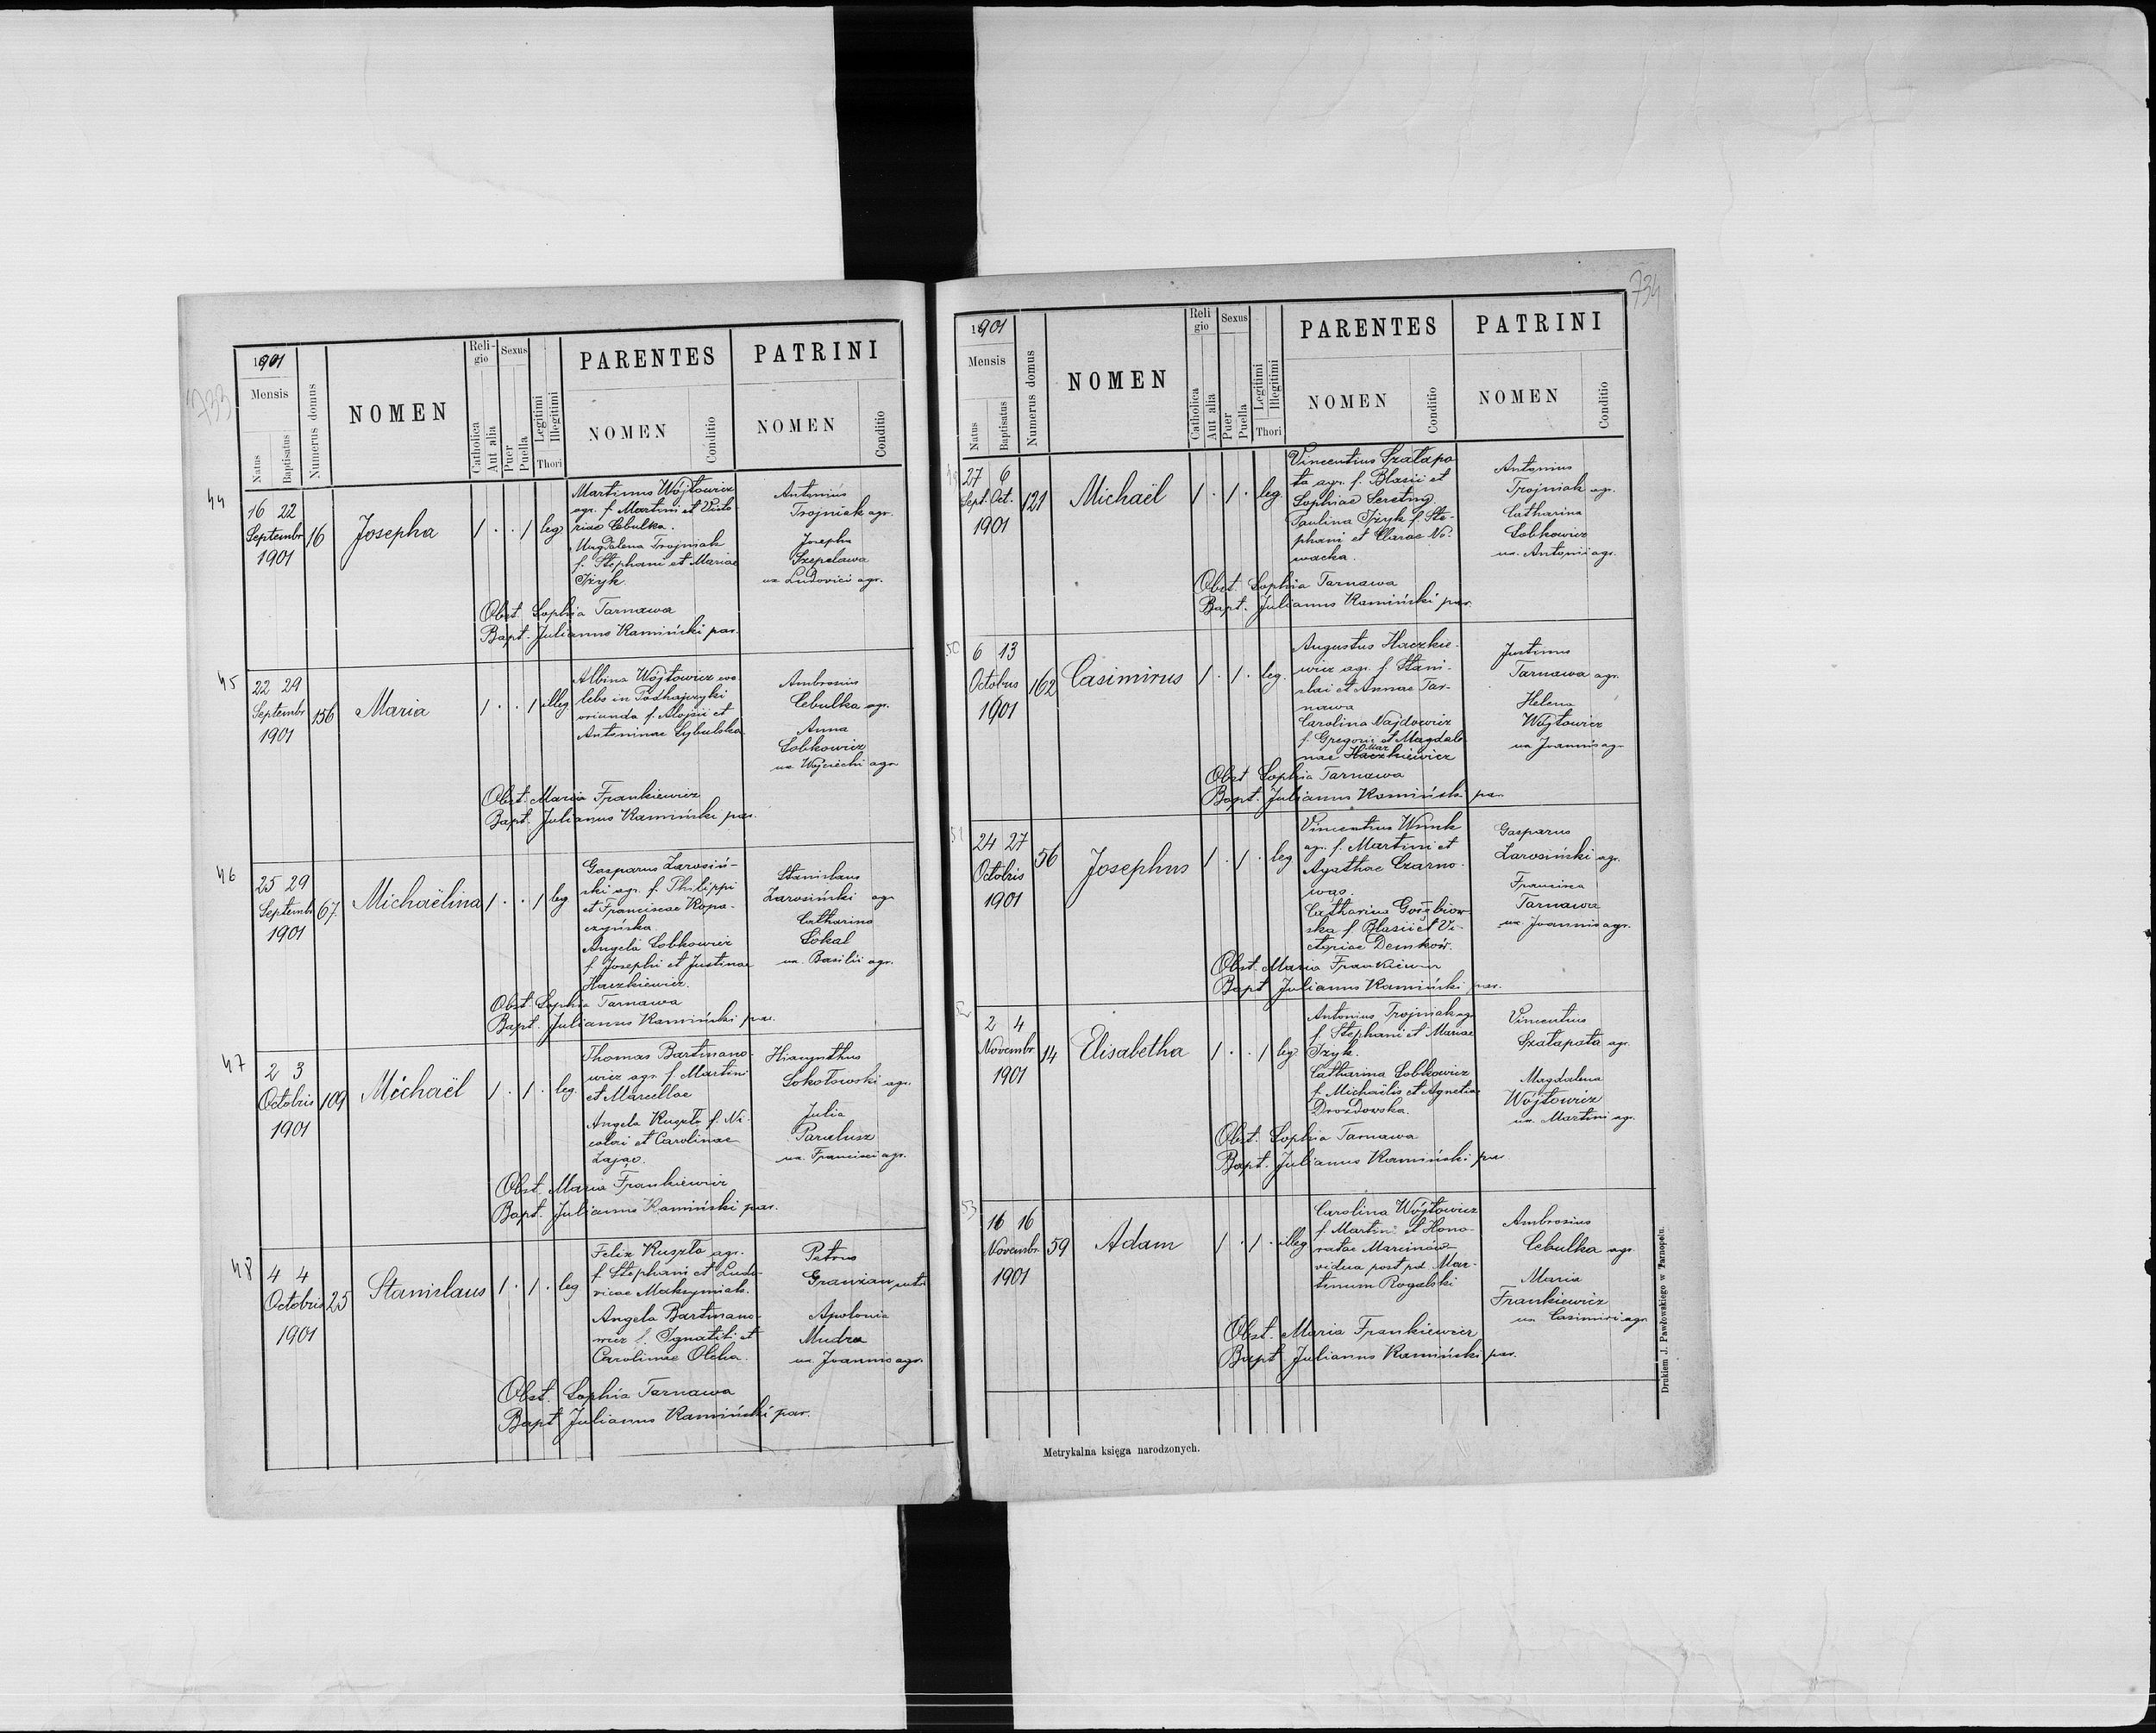 733
1901
Mensis
Natus
Baptisatus
Numerus domus
NOMEN
Reli-
gio
Catholica
Aut alia
Sexus
Puer
Puella
Legitimi
Illegitimi
Thori
PARENTES
NOMEN
Conditio
PATRINI
NOMEN
Conditio
44
16 22
Septembr
1901
16
Josepha
1 . . 1 leg
Martinus Wójtowicz
agr. f. Martini et Victo
riae Cebulka.
Magdalena Trojniak
f. Stephani et Mariae
Iżyk.
Antonius
Trojniak agr.
Josepha
Szepelawa
ux Ludovici agr.
Obst. Sophia Tarnawa
Bapt. Julianus Kamiński par.
45
22 29
Septembr
1901
156
Maria
1 . . 1 illeg
Albina Wojtowicz coe
lebs in Podhajczyki
oriunda f. Alojsii et
Antoninae Cybulska
Ambrosius
Cebulka agr.
Anna
Sobkowicz
ux. Wojciechi agr
Obst. Maria Frankiewicz
Bapt. Julianus Kamiński par.
46
25 29
Septembr
1901
67
Michaëlina
1 . . 1 leg
Gasparus Zarosiń-
ski agr. f. Philippi
et Franciscae Kopa-
czyńska
Angela Sobkowicz
f. Josephi et Justinae
Haczkiewicz.
Stanislaus
Zarosiński agr
Catharina
Sokal
ux. Basilii agr.
Obst. Sophia Tarnawa
Bapt. Julianus Kamiński par.
47
2 3
Octobris
1901
109
Michaël
1 . 1 . leg.
Thomas Bartmano-
wicz agr. f. Martini
et Marcellae
Angela Kuszło f. Ni-
colai et Carolinae
Zając.
Hiacynthus
Sokołowski agr.
Julia
Paralusz
ux. Francisci agr.
Obst. Maria Frankiewicz
Bapt. Julianus Kamiński par.
48
4 4
Octobris
1901
25
Stanislaus
1 . 1 . leg
Felix Kuszło agr.
f. Stephani et Ludo-
vicae Maksymiak.
Angela Bartmano-
wicz f. Ignatii et
Carolinae Olcha.
Petrus
Granzan
Apolonia
Mudra
ux. Joannis agr.
Obst. Sophia Tarnawa
Bapt Julianus Kamiński par.
734
1901
Mensis
Natus
Baptisatus
Numerus domus
NOMEN
Reli
gio
Catholica
Aut alia
Sexus
Puer
Puella
Legitimi
Illegitimi
Thori
PARENTES
NOMEN
Conditio
PATRINI
NOMEN
Conditio
49
27 6
Sept. Oct.
1901
121
Michaël
1 . 1 . leg.
Vincentius Szałapa
ta agr. f. Blasii et
Sophiae
Paulina Iżyk f. Ste-
phani et Clarae No-
wacka.
Antonius
Trojniak agr.
Catharina
Sobkowicz
ux. Antonii agr.
Obst. Sophia Tarnawa
Bapt. Julianus Kamiński par.
50
6 13
Octobris
1901
162
Casimirus
1 . 1 . leg.
Augustus Haczkie-
wicz agr. f. Stani-
slai et Annae Tar-
nawa
Carolina Najdowicz
f. Gregorii et Magdale
nae Haczkiewicz
Justinus
Tarnawa agr.
Helena
Wójtowicz
ux Joannis agr
Obst Sophia Tarnawa
Bapt. Julianus Kamiński par.
51
24 27
Octobris
1901
56
Josephus
1 . 1 . leg
Vincentius Wnuk
agr. f. Martini et
Agathae Czarno-
was.
Catharina Gołębiow
ska f. Blasii et Vi-
ctoriae Demków.
Gasparus
Zarosiński agr.
Francisca
Tarnawa
ux. Joannis agr.
Obst. Maria Frankiewicz
Bapt Julianus Kamiński par.
52
2 4
Novembr
1901
14
Elisabetha
1 . . 1 leg.
Antonius Trojniak agr
f. Stephani et Mariae
Iżyk.
Catharina Sobkowicz
f. Michaëlis et Agnetis
Drozdowska.
Vincentius
Szałapata agr.
Magdalena
Wójtowicz
ux. Martini agr.
Obst. Sophia Tarnawa
Bapt. Julianus Kamiński par.
53
16 16
Novembr.
1901
59
Adam
1 . 1 . illeg
Carolina Wójtowicz
f. Martini et Hono-
ratae Marcinów
vidua post pd. Mar-
tinum Rogalski
Ambrosius
Cebulka agr.
Maria
Frankiewicz
ux Casimiri agr
Obst. Maria Frankiewicz
Bapt Julianus Kamiński par.
Metrykalna księga narodzonych.
Drukiem J. Pawłowskiego w Tarnopolu.